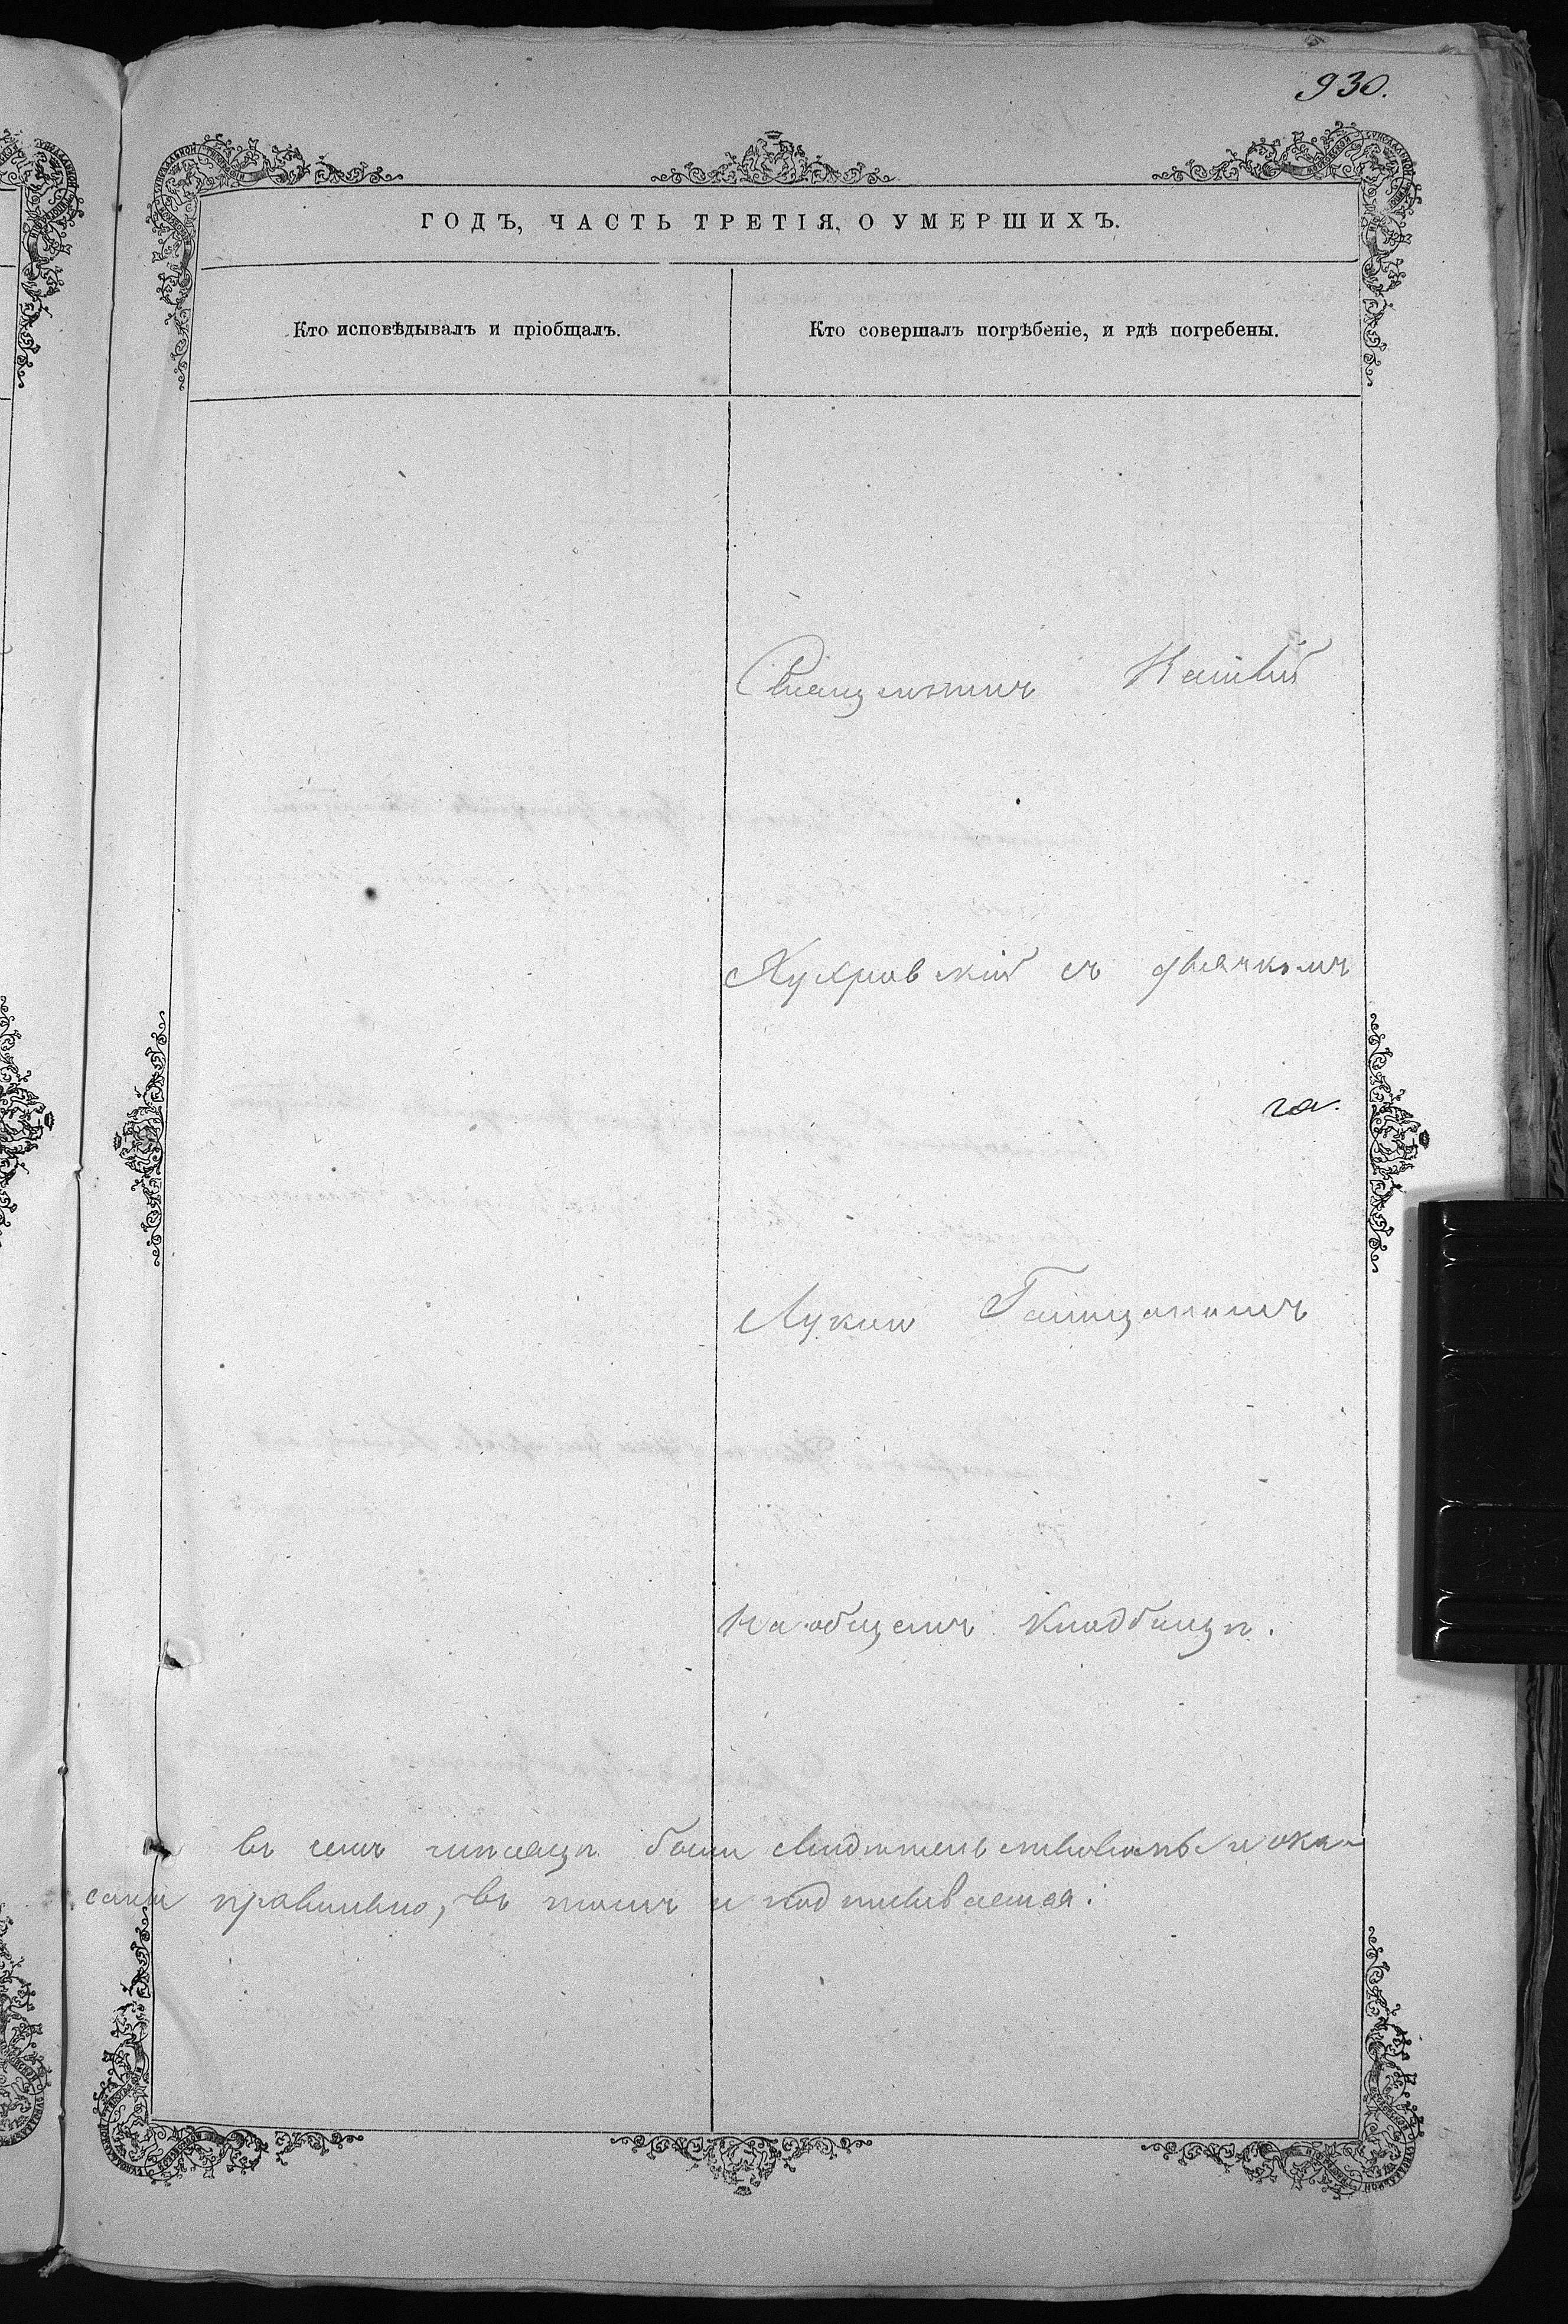 930.
ГОДЪ, ЧАСТЬ ТРЕТІЯ, О УМЕРШИХЪ.
Кто исповѣдывалъ и пріобщалъ.
Кто совершалъ погрѣбеніе, и гдѣ погребены.
Священникъ
съ дьячкомъ
га.
Лукою
На общемъ кладбищѣ.
въ семъ мѣсяцѣ были свидѣтельствованы и ока-
саны правильно, въ томъ и подписываемся: